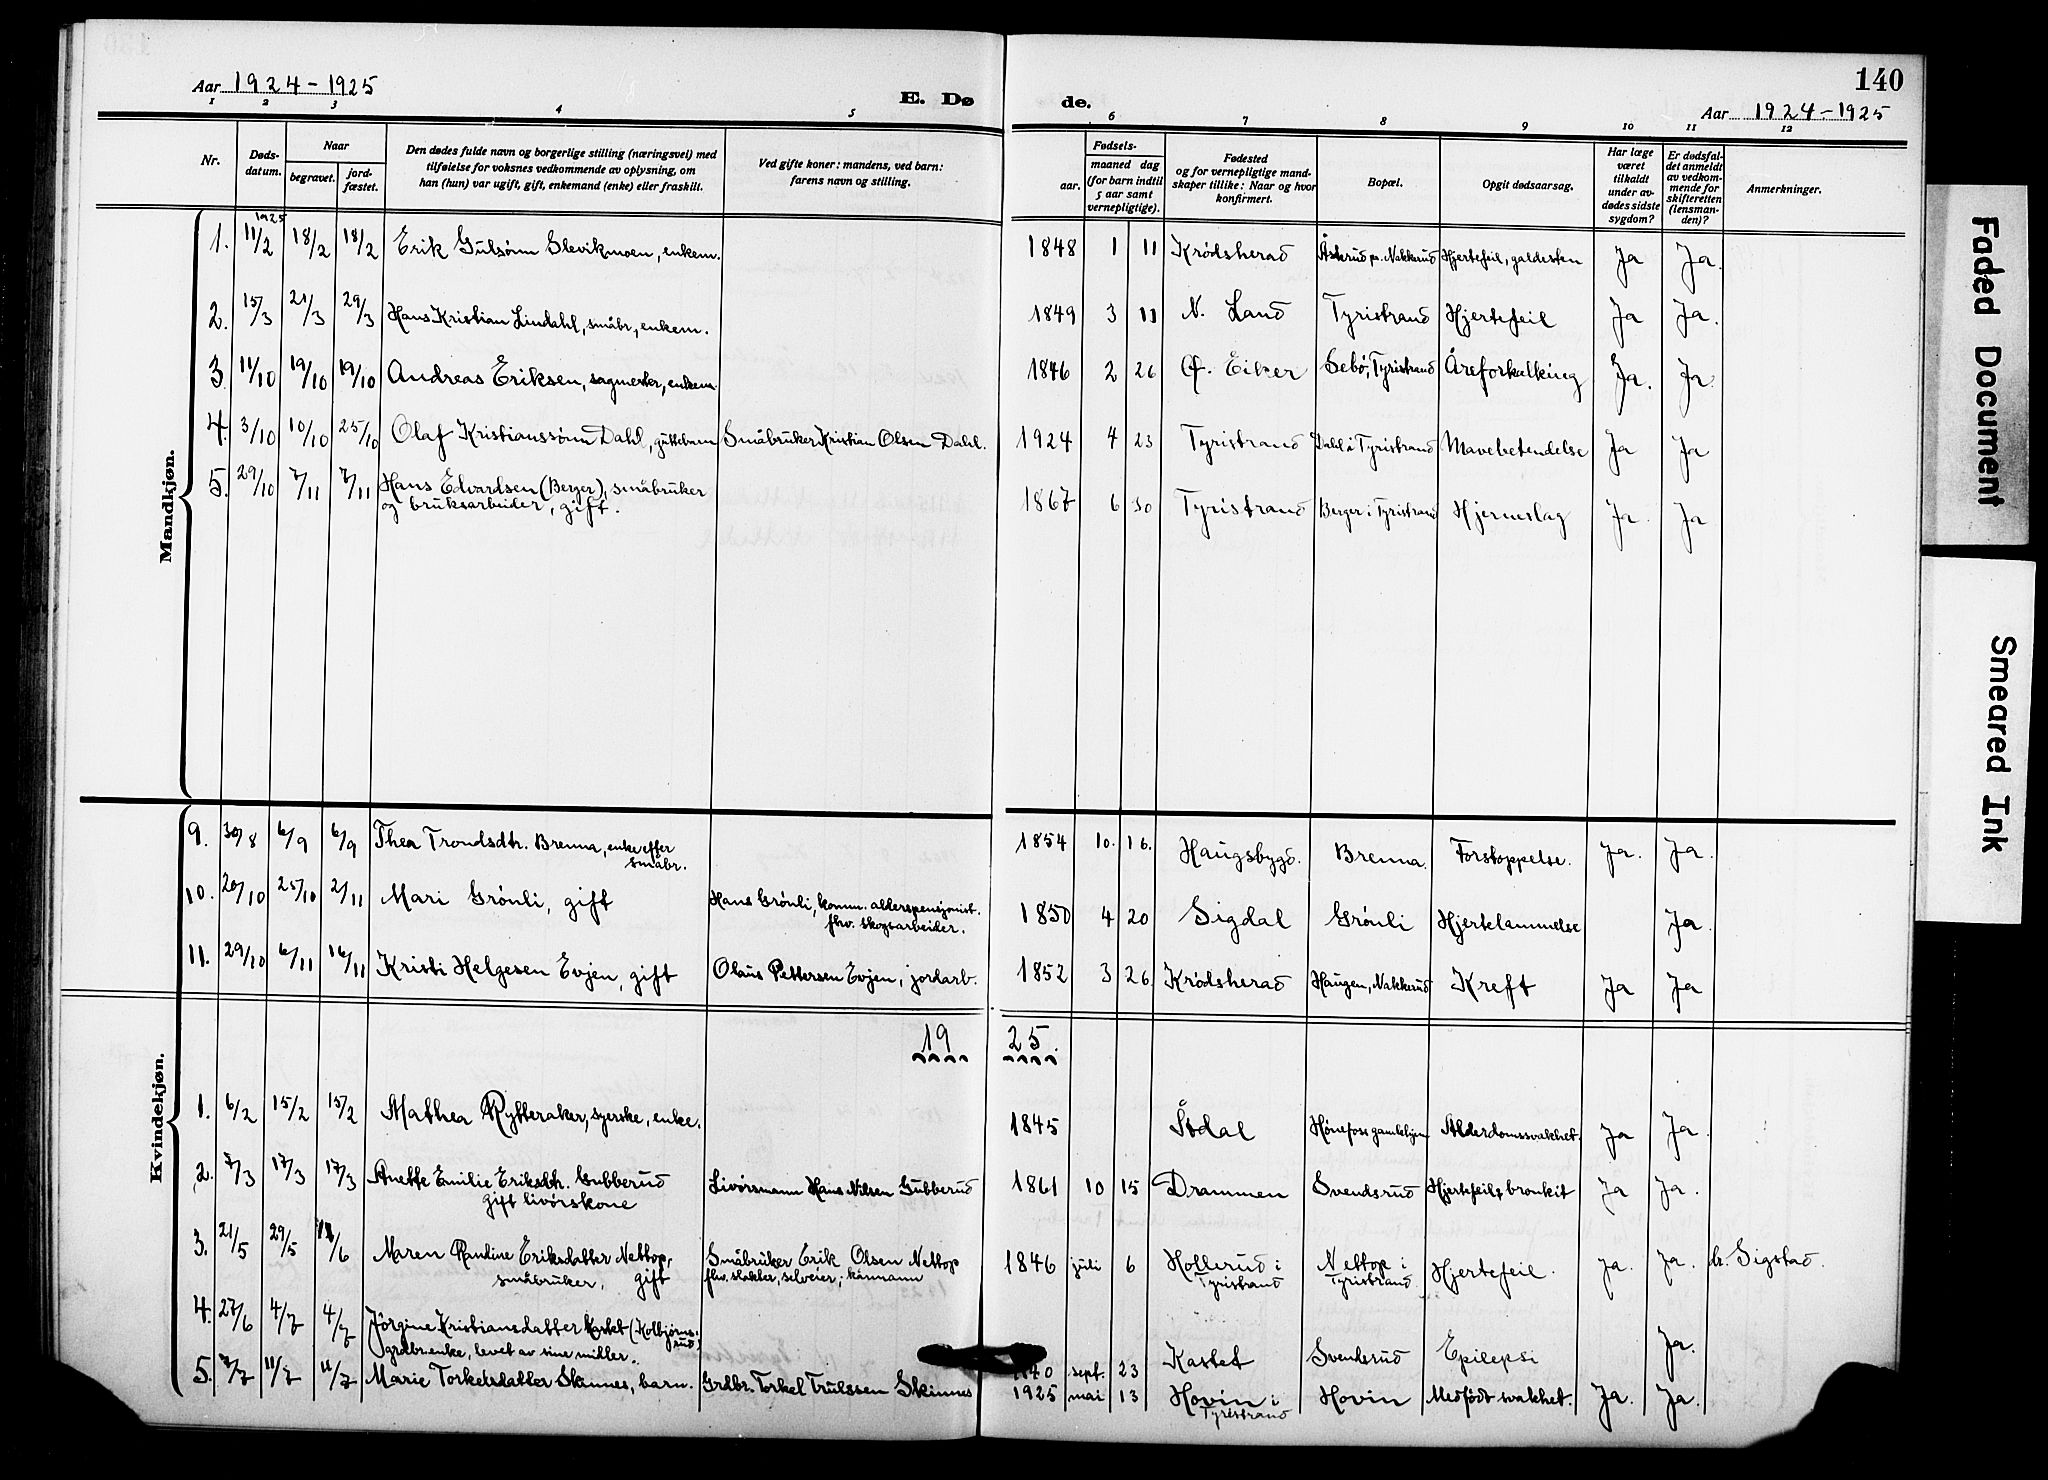 140
Aar 1924-1925
E. Dø de.
Aar 1924-1925
1 2 3 4 5 6 7 8 9 10 11 12
Nr.
Døds-datum.
Naar
begravet.
jord-fæstet.
Den dødes fulde navn og borgerlige stilling (næringsvei) med
tilføielse for voksnes vedkommende av oplysning, om
han (hun) var ugift, gift, enkemand (enke) eller fraskilt.
Ved gifte koner: mandens, ved barn:
farens navn og stilling.
Fødsels-
aar.
maaned dag
(for barn indtil
5 aar samt
vernepligtige).
Fødested
og for vernepligtige mand-
skaper tillike: Naar og hvor
konfirmert.
Bopæl.
Opgit dødsaarsag.
Har læge
været
tilkaldt
under av-
dødes sidste
sygdom?
Er dødsfal-
det anmeldt
av vedkom-
mende for
skifteretten
(lensman-
den)?
Anmerkninger.
Mandkjøn.
1925
1. 11/2 18/2 18/2 Erik Gulsønn Slevikmoen, enkem. 1848 1 11 Krødsherad Åsterud pr. Nakkerud Hjertefeil, galdesten Ja Ja.
2. 15/3 21/3 29/3 Hans Kristian Lindahl, småbr., enkem. 1849 3 11 N. Land Tyristrand Hjertefeil Ja Ja.
3. 11/10 19/10 19/10 Andreas Eriksen, sagmester, enkem. 1846 2 26 Ø. Eiker Sebø, Tyristrand Åreforkalkning Ja. Ja
4. 3/10 10/10 25/10 Olaf Kristianssønn Dahl, guttebarn Småbruker Kristian Olsen Dahl. 1924 4 23 Tyristrand Dahl i Tyristrand Mavebetendelse Ja Ja
5. 29/10 7/11 7/11 Hans Edvardsen (Berger), småbruker
og bruksarbeider, gift. 1867 6 30 Tyristrand Berger i Tyristrand Hjerneslag Ja Ja
Kvindekjøn.
9. 30/8 6/9 6/9 Thea Trondsdtr. Brenna, enke efter
småbr. 1854 10. 16. Haugsbygd. Brenna. Forstoppelse. Ja. Ja.
10. 20/10 25/10 2/11 Mari Grønli, gift Hans Grønli, komm. alderspensjonist.
fhv. skogsarbeider. 1850 4 20 Sigdal Grønli Hjertelammelse Ja.
11. 29/10 6/11 16/11 Kristi Helgesen Evjen, gift Olaus Pettersen Evjen, jordarb. 1852 3 26. Krødsherad Haugen, Nakkerud Kreft Ja Ja
19 25.
1. 6/2 15/2 15/2 Mathea Rytteraker, syerske, enke. 1845 Ådal Hønefoss gamlehjem Alderdomssvakhet. Ja Ja.
2. 7/3 17/3 17/3 Anette Emilie Eriksdtr. Gubberud
gift livørskone Livørsmann Hans Nilsen Gubberud 1861 10 15 Drammen Svendsrud Hjertefeil, bronkit Ja Ja.
3. 21/5 29/5 /6 Maren Randine Eriksdatter Nettop,
småbruker, gift Småbruker Erik Olsen Nettop
1846 juli 6 Hollerud i
Tyristrand Nettop i
Tyristrand Hjertefeil. Ja. Ja. dr. Sigstad.
4. 27/6 4/7 4/7 Jørgine Kristiansdatter Kastet (Kolbjørns-
rud)
grdbr.enke, levet av sine midler. 1840 sept. 23 Kastet Svendsrud Epilepsi Ja.
5. 7/7 11/7 11/7 Marie Torkelsdatter Skinnes, barn. Grdbr. Torkel Trulssen Skinnes 1925 mai 13 Hovin i
Tyristrand Hovin Medfødt svakhet. Ja. Ja.
Faded Document
Smeared Ink